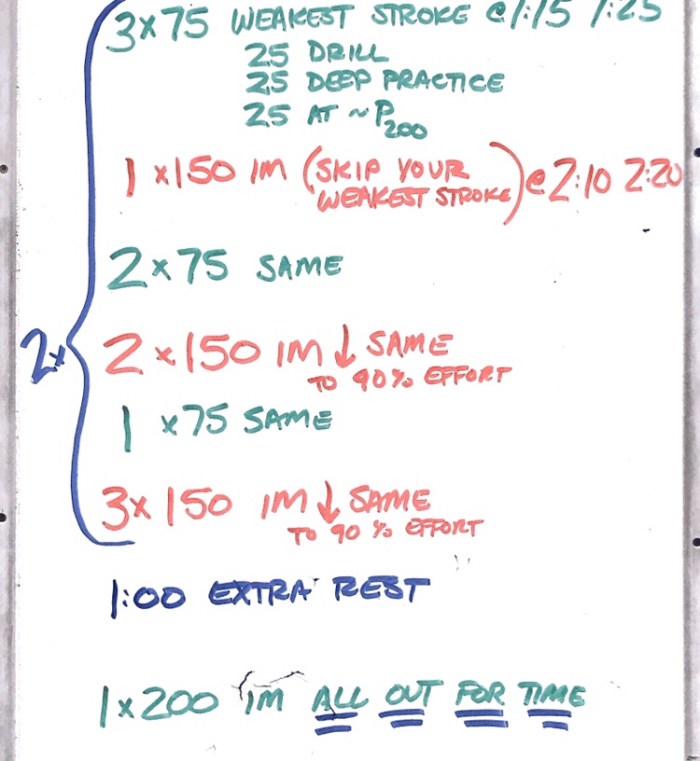 3x75 WEAKEST STROKE @1:15 1:25
25 DRILL
25 DEEP PRACTICE
25 AT ~P200
1 x150 IM (SKIP YOUR WEAKEST STROKE) @ 2:10 2:20
2x75 SAME
2x
2x150 IM ↓ SAME
TO 90% EFFORT
1 x75 SAME
3x150 IM ↓ SAME
TO 90% EFFORT
1:00 EXTRA REST
1x200 IM ALL OUT FOR TIME